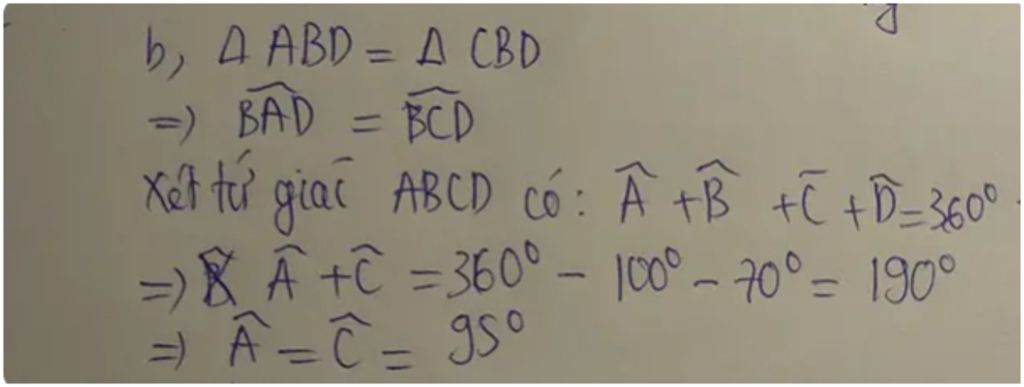 b, Δ ABD = Δ CBD
=) \widehat{BAD} = \widehat{BCD}
Xét tứ giác ABCD có: \widehat{A} + \widehat{B} + \widehat{C} + \widehat{D} = 360°
=) \widehat{A} + \widehat{C} = 360° - 100° - 70° = 190°
=) \widehat{A} = \widehat{C} = 95°